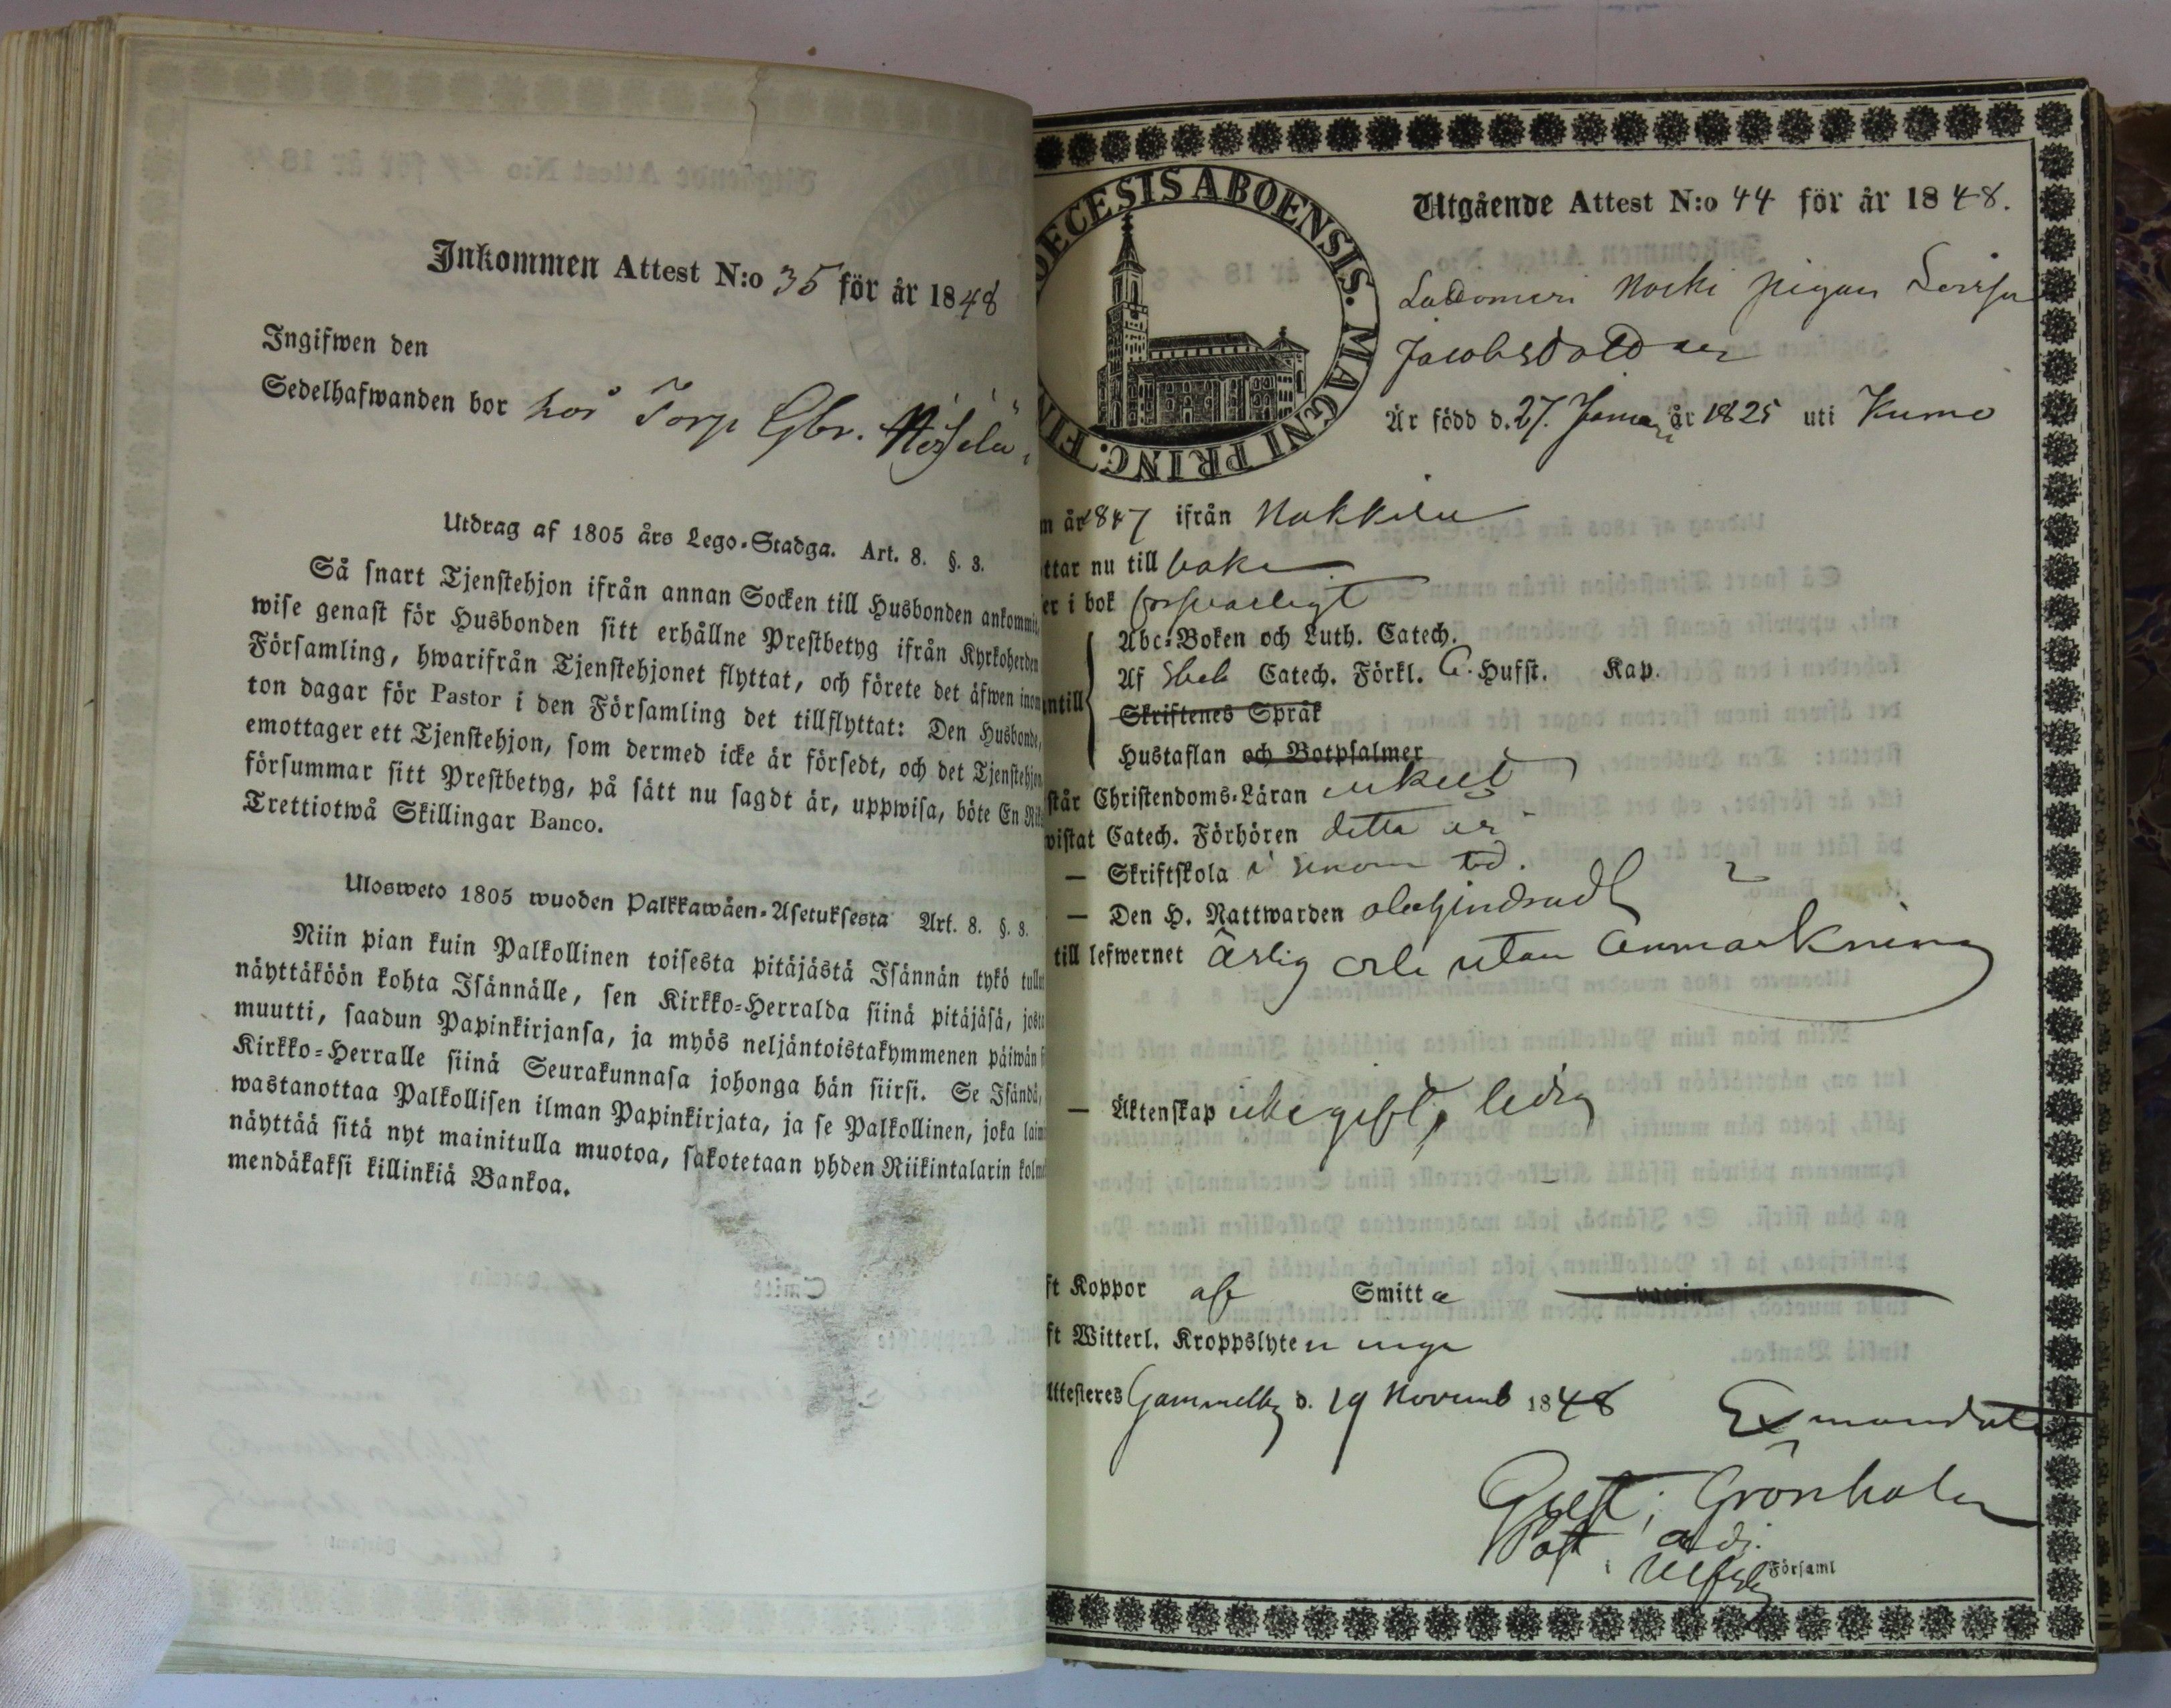 Inkommen Attest N:o 35 för år 1848
Ingifwen den
Sedelhafwanden bor hos Torp Gbr.
Utdrag af 1805 års Lego-Stadga. Art. 8. §. 3.
Så snart Tjenstehjon ifrån annan Socken till Husbonden ankommit,
wise genast för Husbonden sitt erhållne Prestbetyg ifrån Kyrkoherden
Församling, hwarifrån Tjenstehjonet flyttat, och förete det äfwen inom
ton dagar för Pastor i den Församling det tillflyttat: Den Husbonde,
emottager ett Tjenstehjon, som dermed icke är försedt, och det Tjenstehjon
försummar sitt Prestbetyg, på sätt nu sagdt är, uppwisa, böte En Rik
Trettiotwå Skillingar Banco.
Ulosweto 1805 wuoden Palkkawäen-Asetuksesta Art. 8. §. 3.
Niin pian kuin Palkollinen toisesta pitäjästä Isännän tykö tullu
näyttäköön kohta Isännälle, sen Kirkko-Herralda siinä pitäjäsä, josta
muutti, saadun Papinkirjansa, ja myös neljäntoistakymmenen päiwän
Kirkko-Herralle siinä Seurakunnasa johonga hän siirsi. Se Isändä,
wastanottaa Palkollisen ilman Papinkirjata, ja se Palkollinen, joka laim
näyttää sitä nyt mainitulla muotoa, sakotetaan yhden Riikintalarin kolm
mendäkaksi killinkiä Bankoa.
DIOECESIS ABOENSIS. MAGNI PRINC. FIN
Utgående Attest N:o 44 för år 1848.
Nocki pigan
Jacobsdotter
Är född d. 27. Januari år 1825 uti Kumo
n år 1847 ifrån Nakkila
ttar nu till baka
er i bok försvarligt
Abc-Boken och Luth. Catech.
Af Sveb Catech. Förkl. 6. Hufst. Kap.
ntill
Skriftenes Språk
Hustaflan och Botpsalmer
står Christendoms-Läran enkelt
wistat Catech. Förhören detta år
— Skriftskola i sinom tid.
— Den H. Nattwarden obehindradt
till lefwernet ärlig och utan anmärkning
— Äktenskap icke gift, ledig
ft Koppor af Smitta vaccin
ft Witterl. Kroppslyten inga
Attesteres Gammelby d. 19 Novemb 1848
Ex mandato
Gust. Grönholm
Past adj.
i Ulfsby Församl